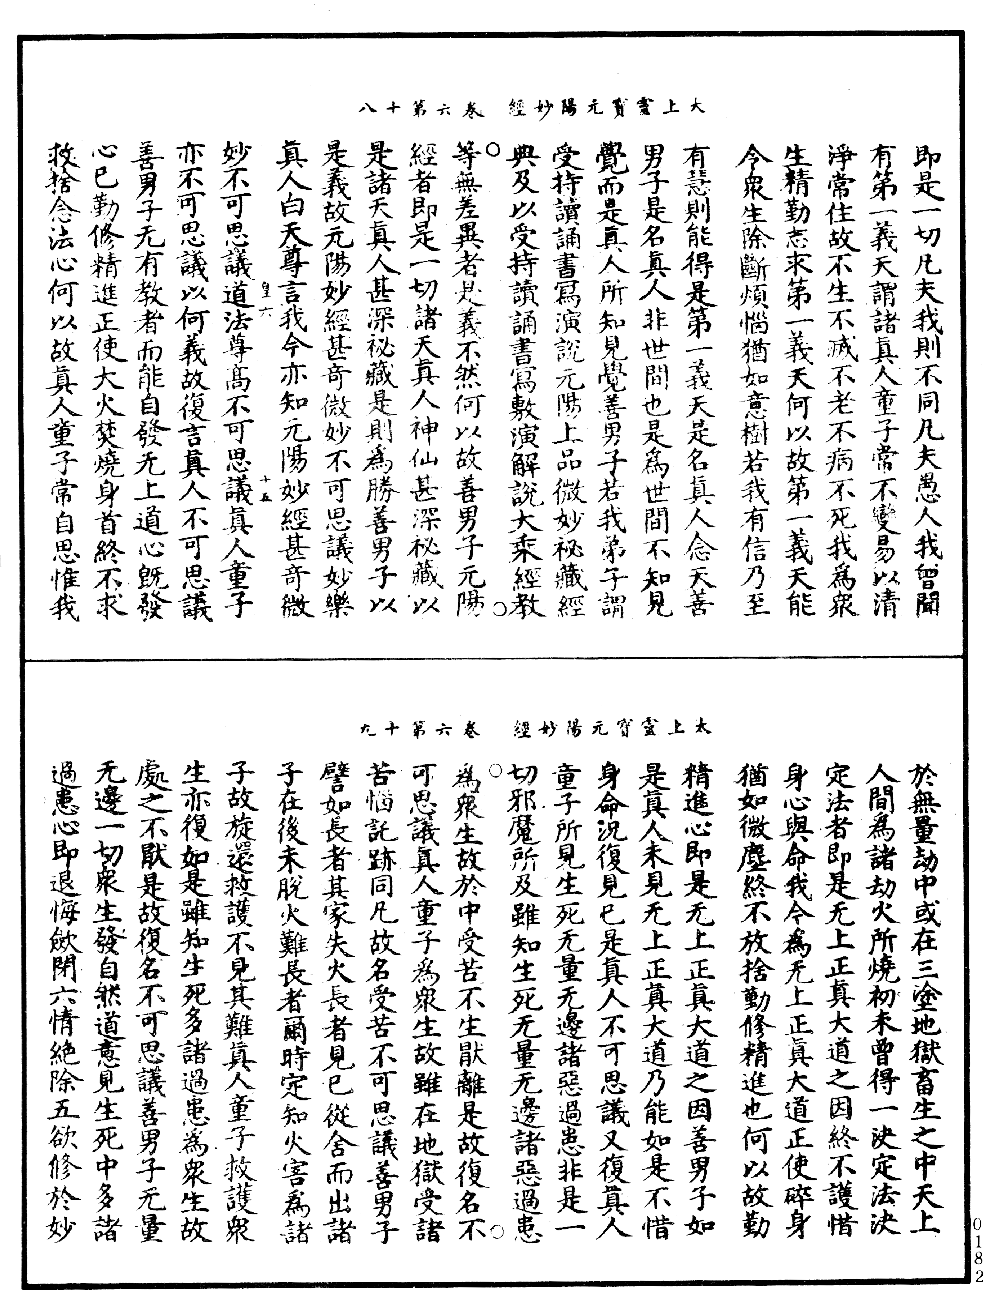 太上靈寶元陽妙經　卷六第十八
即是一切凡夫我則不同凡夫愚人我曾聞
有第一義天謂諸真人童子常不變易以清
淨常住故不生不滅不老不病不死我為衆
生精勤志求第一義天何以故第一義天能
令衆生除斷煩惱猶如意樹若我有信乃至
有慧則能得是第一義天是名真人念天善
男子是名真人非世間也是為世間不知見
覺而是真人所知見覺善男子若我弟子謂
受持讀誦書寫演說元陽上品微妙祕藏經
典及以受持讀誦書寫敷演解說大乘經教
等無差異者是義不然何以故善男子元陽
經者即是一切諸天真人神仙甚深祕藏以
是諸天真人甚深祕藏是則為勝善男子以
是義故元陽妙經甚奇微妙不可思議妙樂
真人白天尊言我今亦知元陽妙經甚奇微
皇六　十五
妙不可思議道法尊高不可思議真人童子
亦不可思議以何義故復言真人不可思議
善男子无有教者而能自發无上道心既發
心已勤修精進正使大火焚燒身首終不求
救捨念法心何以故真人童子常自思惟我
太上靈寶元陽妙經　卷六第十九
於無量劫中或在三塗地獄畜生之中天上
人間為諸劫火所燒初未曾得一決定法決
定法者即是无上正真大道之因終不護惜
身心與命我今為无上正真大道正使碎身
猶如微塵終不放捨勤修精進也何以故勤
精進心即是无上正真大道之因善男子如
是真人未見无上正真大道乃能如是不惜
身命況復見已是真人不可思議又復真人
童子所見生死无量无邊諸惡過患非是一
切邪魔所及雖知生死无量无邊諸惡過患
為衆生故於中受苦不生厭離是故復名不
可思議真人童子為衆生故雖在地獄受諸
苦惱託跡同凡故名受苦不可思議善男子
譬如長者其家失火長者見已從舍而出諸
子在後未脫火難長者爾時定知火害為諸
子故旋還救護不見其難真人童子救護衆
生亦復如是雖知生死多諸過患為衆生故
處之不厭是故復名不可思議善男子元量
无邊一切衆生發自然道意見生死中多諸
過患心即退悔歛閉六情絕除五欲修於妙
0182